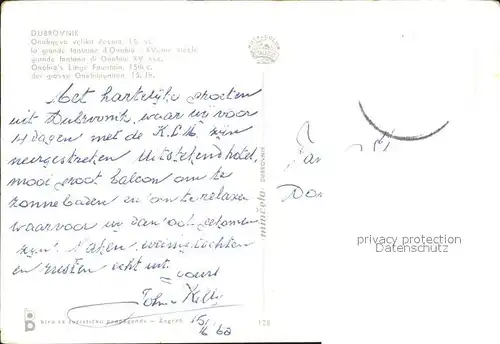 DUBROVNIK
Onofrijeva velika česma, 15. st.
la grande fontaine d'Onofrio - XV-me siècle
grande fontana di Onofrio XV sec.
Onofrio's Large Fountain, 15th c.
der grosse Onofriobrunnen 15. Jh.
Met hartelijke groeten
uit Dubrovnik, waar wij voor
14 dagen met de K.L.M. zijn
neergestreken Uitstekend hotel
mooi groot balcon om te
zonnebaden en om te relaxen
waarvoor wij dan ook gekomen
zijn! Maken, weinig tochten
en rusten echt uit.
John + Kelly
15/
6 '68
minčeta DUBROVNIK
Fa
Do
privacy protection
Datenschutz
biro za turističku propagandu - Zagreb
128